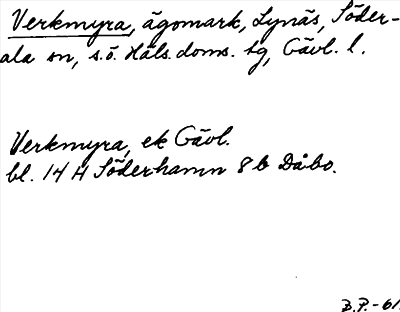 Verkmyra, ägomark, Lynäs, Söder-
ala sn, s.ö. Häls. doms. sg, Gävl. l.
Verkmyra, ek Gävl.
bl. 14 H Söderhamn 8 b Dåbo.
B.P.-61.